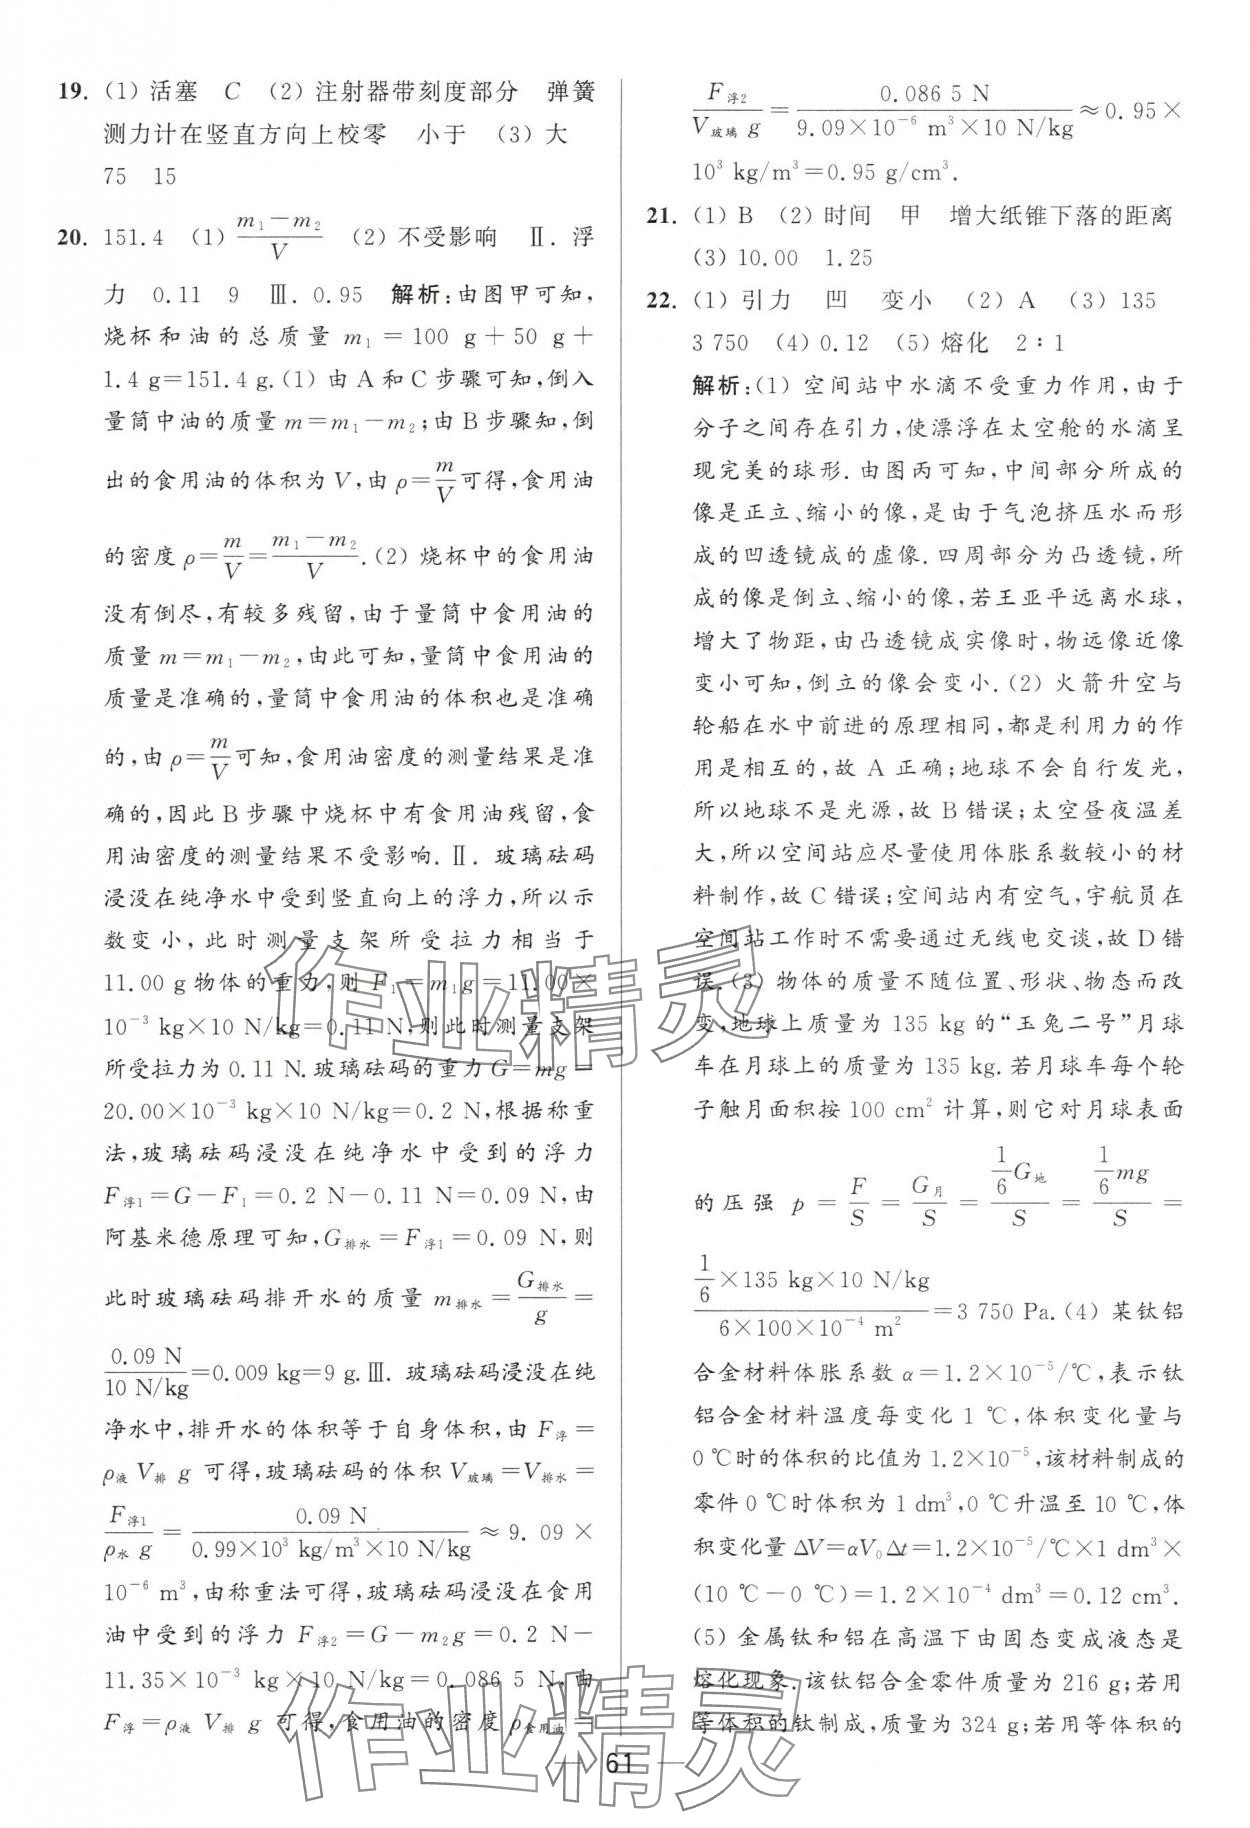 19. (1) 活塞　C　(2) 注射器带刻度部分　弹簧
测力计在竖直方向上校零　小于　(3) 大
75　15
20. 151.4　(1) \frac{m₁－m₂}{V}　(2) 不受影响　Ⅱ. 浮
力　0.11　9　Ⅲ. 0.95　解析:由图甲可知,
烧杯和油的总质量 m₁＝100 g＋50 g＋
1.4 g=151.4 g.(1) 由 A 和 C 步骤可知,倒入
量筒中油的质量 m＝m₁－m₂;由 B 步骤知,倒
出的食用油的体积为 V,由 ρ＝\frac{m}{V}可得,食用油
的密度 ρ＝\frac{m}{V}＝\frac{m₁－m₂}{V}.(2) 烧杯中的食用油
没有倒尽,有较多残留,由于量筒中食用油的
质量 m＝m₁－m₂,由此可知,量筒中食用油的
质量是准确的,量筒中食用油的体积也是准确
的,由 ρ＝\frac{m}{V}可知,食用油密度的测量结果是准
确的,因此 B 步骤中烧杯中有食用油残留,食
用油密度的测量结果不受影响.Ⅱ. 玻璃砝码
浸没在纯净水中受到竖直向上的浮力,所以示
数变小,此时测量支架所受拉力相当于
11.00 g 物体的重力,则 F₁＝m₁g＝11.00×
10⁻³ kg×10 N/kg＝0.11 N,则此时测量支架
所受拉力为 0.11 N.玻璃砝码的重力 G＝mg＝
20.00×10⁻³ kg×10 N/kg＝0.2 N,根据称重
法,玻璃砝码浸没在纯净水中受到的浮力
F浮1＝G－F₁＝0.2 N－0.11 N＝0.09 N,由
阿基米德原理可知,G排水＝F浮1＝0.09 N,则
此时玻璃砝码排开水的质量 m排水＝\frac{G排水}{g}＝
\frac{0.09 N}{10 N/kg}=0.009 kg=9 g.Ⅲ. 玻璃砝码浸没在纯
净水中,排开水的体积等于自身体积,由 F浮＝
ρ液 V排 g 可得,玻璃砝码的体积 V玻璃＝V排水＝
\frac{F浮1}{ρ水 g}＝\frac{0.09 N}{0.99×10³ kg/m³×10 N/kg}≈9.09×
10⁻⁶ m³,由称重法可得,玻璃砝码浸没在食用
油中受到的浮力 F浮2＝G－m₂g＝0.2 N－
11.35×10⁻³ kg×10 N/kg＝0.086 5 N,由
F浮＝ρ液 V排 g 可得,食用油的密度 ρ食用油＝
\frac{F浮2}{V玻璃 g}＝\frac{0.086 5 N}{9.09×10⁻⁶ m³×10 N/kg}≈0.95×
10³ kg/m³＝0.95 g/cm³.
21. (1) B　(2) 时间　甲　增大纸锥下落的距离
(3) 10.00　1.25
22. (1) 引力　凹　变小　(2) A　(3) 135
3 750　(4) 0.12　(5) 熔化　2∶1
解析:(1) 空间站中水滴不受重力作用,由于
分子之间存在引力,使漂浮在太空舱的水滴呈
现完美的球形.由图丙可知,中间部分所成的
像是正立、缩小的像,是由于气泡挤压水而形
成的凹透镜成的虚像.四周部分为凸透镜,所
成的像是倒立、缩小的像,若王亚平远离水球,
增大了物距,由凸透镜成实像时,物远像近像
变小可知,倒立的像会变小.(2) 火箭升空与
轮船在水中前进的原理相同,都是利用力的作
用是相互的,故 A 正确;地球不会自行发光,
所以地球不是光源,故 B 错误;太空昼夜温差
大,所以空间站应尽量使用体胀系数较小的材
料制作,故 C 错误;空间站内有空气,宇航员在
空间站工作时不需要通过无线电交谈,故 D 错
误.(3) 物体的质量不随位置、形状、物态而改
变,地球上质量为 135 kg 的“玉兔二号”月球
车在月球上的质量为 135 kg.若月球车每个轮
子触月面积按 100 cm² 计算,则它对月球表面
的压强 p＝\frac{F}{S}＝\frac{G月}{S}＝\frac{\frac{1}{6}G地}{S}＝\frac{\frac{1}{6}mg}{S}＝
\frac{\frac{1}{6}×135 kg×10 N/kg}{6×100×10⁻⁴ m²}＝3 750 Pa.(4) 某钛铝
合金材料体胀系数 α＝1.2×10⁻⁵/℃,表示钛
铝合金材料温度每变化 1 ℃,体积变化量与
0 ℃时的体积的比值为 1.2×10⁻⁵,该材料制成的
零件 0 ℃时体积为 1 dm³,0 ℃升温至 10 ℃,体
积变化量 ΔV＝αV₀Δt＝1.2×10⁻⁵/℃×1 dm³×
(10 ℃－0 ℃)＝1.2×10⁻⁴ dm³＝0.12 cm³.
(5) 金属钛和铝在高温下由固态变成液态是
熔化现象.该钛铝合金零件质量为 216 g;若用
等体积的钛制成,质量为 324 g;若用等体积的
61
作业精灵
作业精灵